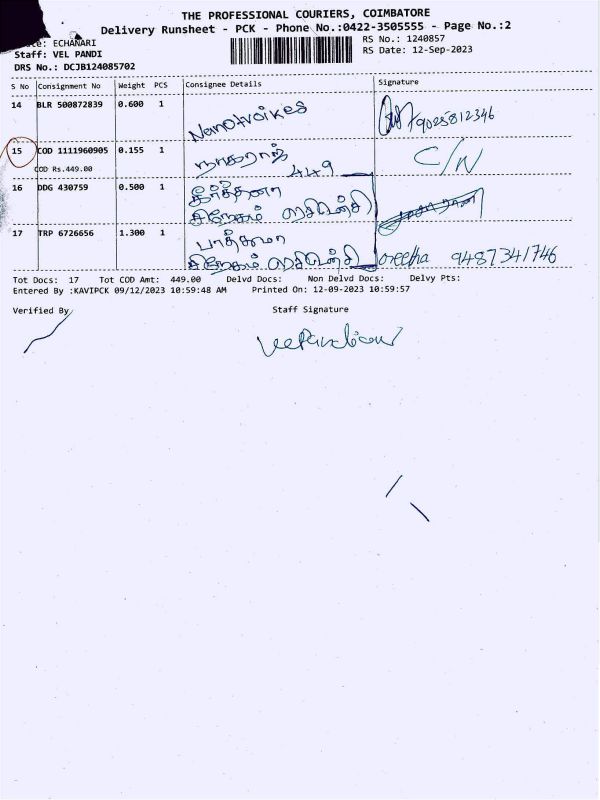 THE PROFESSIONAL COURIERS, COIMBATORE
Delivery Runsheet - PCK - Phone No.:0422-3505555 - Page No.:2
ECHANARI
RS No.: 1240857
Staff: VEL PANDI
RS Date: 12-Sep-2023
DRS No.: DCJB124085702
S No Consignment No Weight PCS Consignee Details Signature
14 BLR 500872839 0.600 1 Nanotvoikes 9025812346
15 COD 1111960905 0.155 1 நாகராஜ் C/N
COD Rs.449.00 449
16 DDG 430759 0.500 1
17 TRP 6726656 1.300 1 பாத்திமா
9487341746
Tot Docs: 17 Tot COD Amt: 449.00 Delvd Docs: Non Delvd Docs: Delvy Pts:
Entered By :KAVIPCK 09/12/2023 10:59:48 AM Printed On: 12-09-2023 10:59:57
Verified By Staff Signature